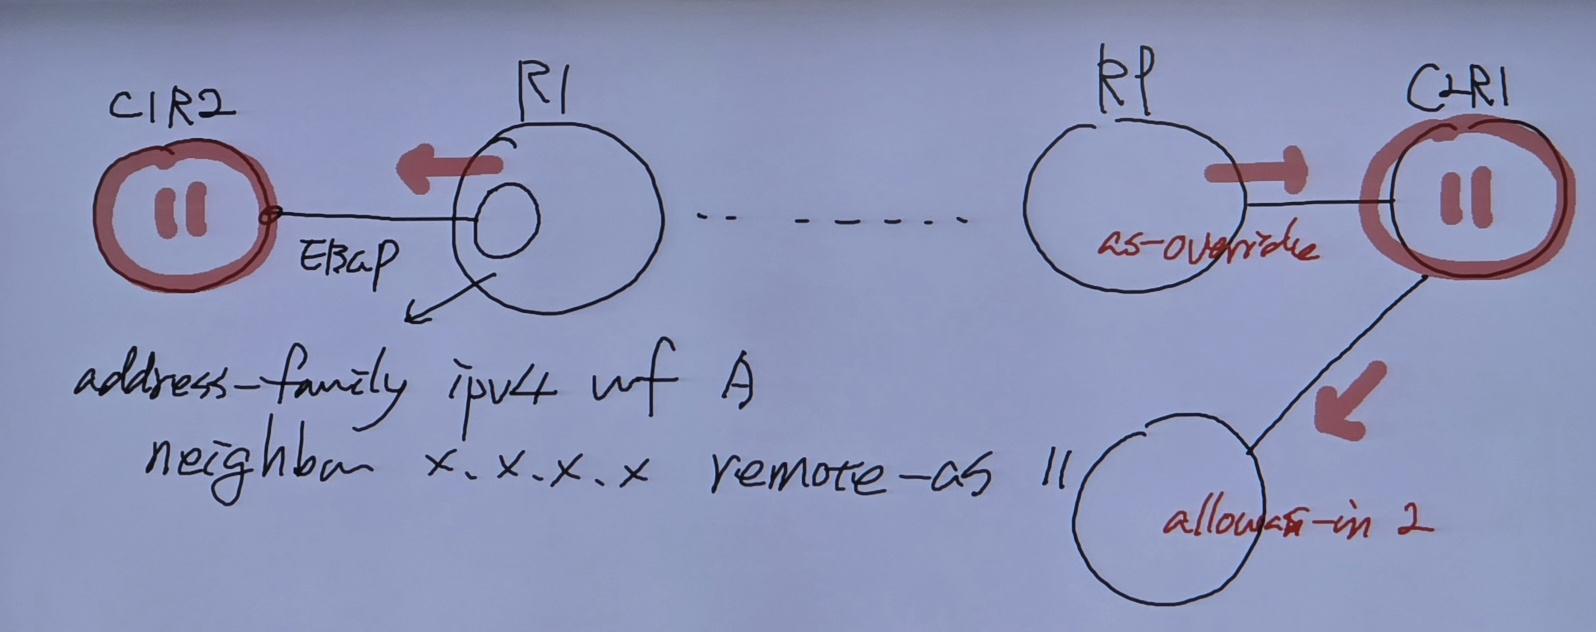 C1R2
R1
RP
C2R1
11
11
EBGP
as-override
address-family ipv4 vrf A
neighbor x.x.x.x remote-as 11
allowas-in 2